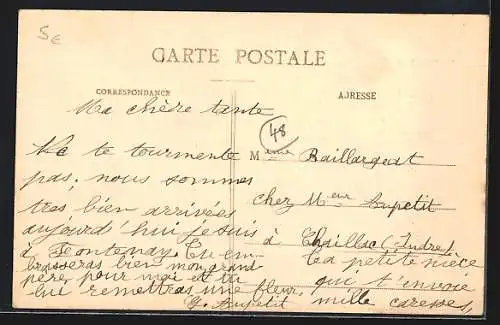 5€
CARTE POSTALE
CORRESPONDANCE
ADRESSE
Ma chère tante
48
Ne te tourmente
pas, nous sommes
très bien arrivées
aujourd'hui je suis
à Fontenay. Tu em-
brasseras bien mon grand
père, pour moi et tu
lui remettras une fleur,
G. Lupetit
Mme Baillargeat
chez Meur Lupetit
à Chaillac (Indre)
ta petite nièce
qui t'envoie
mille caresses,